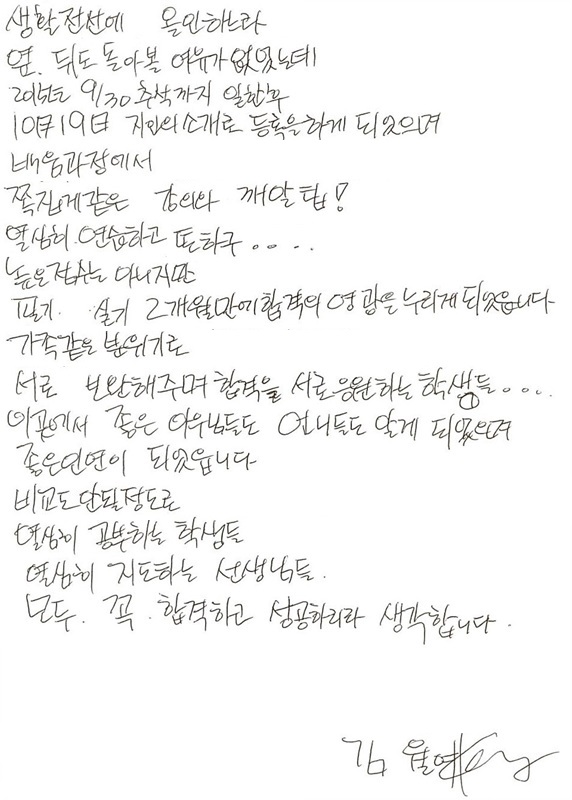 생활전선에 올인하느라
옆. 뒤도 돌아볼 여유가 없었는데
9/30 추석까지 일한후
10月19日 지인의 소개로 등록을 하게 되었으며
배움과정에서
쪽집게같은 강의와 깨알팁!
열심히 연습하고 또하구....
높은점수는 아니지만
필기. 실기 2개월만에 합격의 영광을 누리게 되었습니다
가족같은 분위기로
서로 보완해주며 합격을 서로 응원하는 학생들....
좋은 아우님들도 언니들도 알게 되었으며
좋은인연이 되었읍니다
비교도 안될정도로
열심히 공부하는 학생들
열심히 지도하는 선생님들.
모두. 꼭. 합격하고 성공하리라 생각합니다.
김 월연